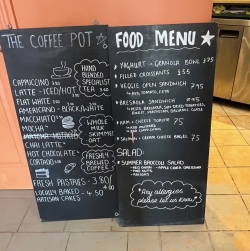 THE COFFEE POT
CAPPUCCINO
LATTE - ICED/HOT
FLAT WHITE
AMERICANO - BLACK/WHITE
MACCHIATO
MOCHA
CHAI LATTE
HOT CHOCOLATE
CORTADO
HAND
BLENDED
SPECIALIST
TEA
WHOLE
MILK
SKIMMED
OAT
FRESHLY
BREWED
COFFEE
FRESH PASTRIES - 3.80/
LOCALLY BAKED - 4.50
ARTISAN CAKES
FOOD MENU
YOGHURT + GRANOLA BOWL 3.95
FILLED CROISSANTS 3.50
VEGGIE OPEN SANDWICH 7.95
BRESAOLA SANDWICH
HAM + CHEESE TOASTIE 7.5
SALMON + CREAM CHEESE BAGEL 7.5
SALAD:
SUMMER BROCCOLI SALAD
RED ONION
APPLE CIDER DRESSING
PINE NUTS
RAISINS
Any allergies
please let us know!